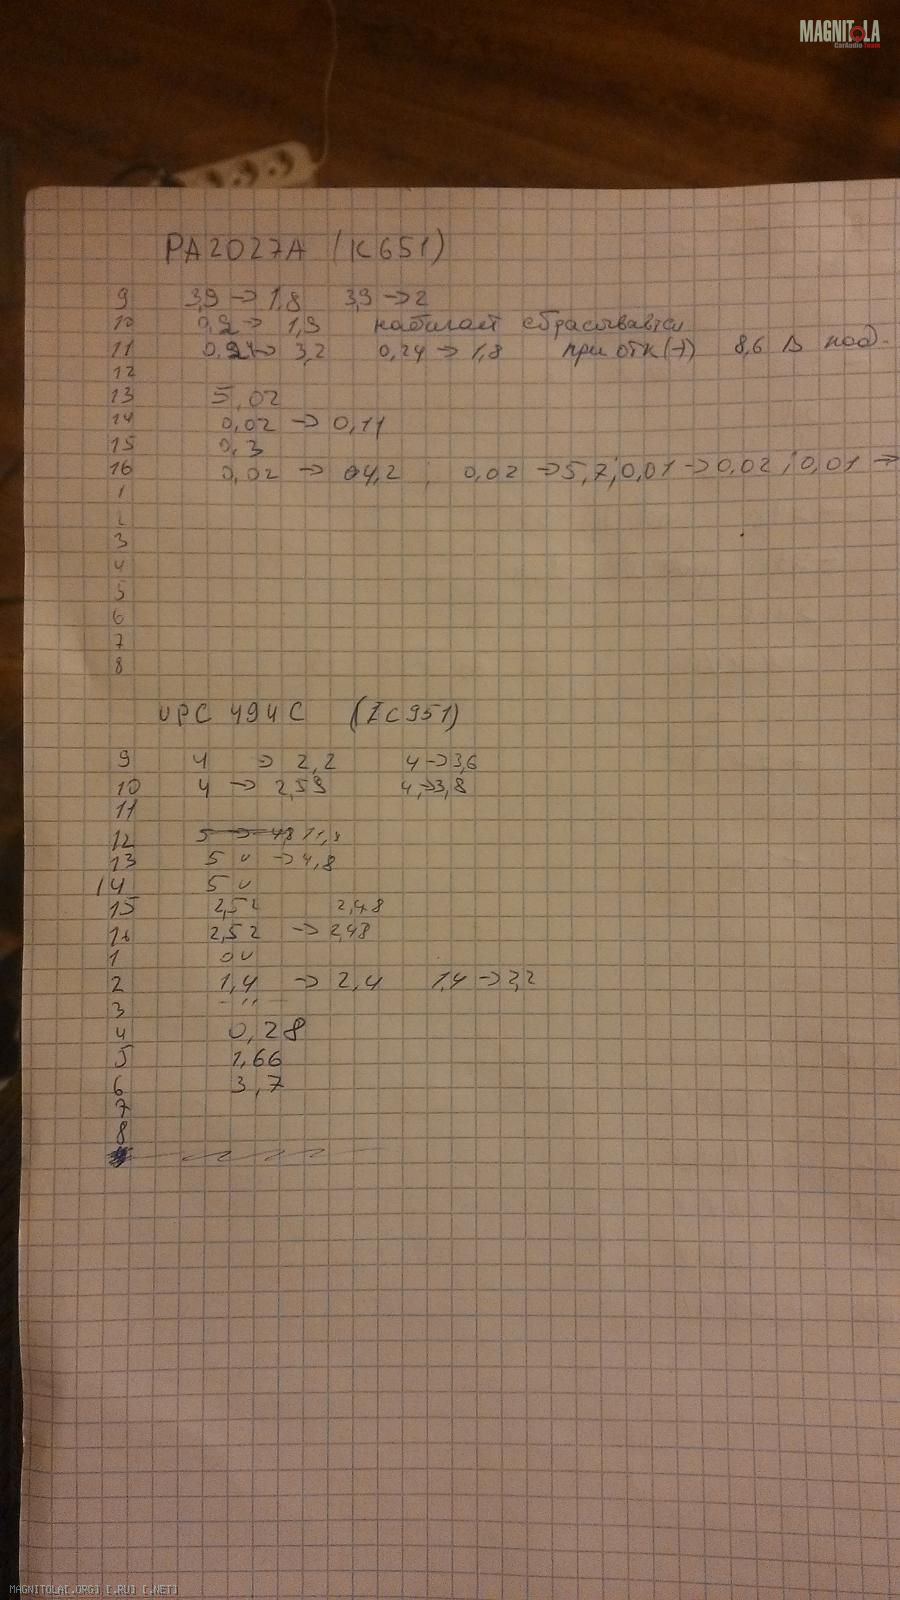 MAGNITOLA
CarAudio Team
PA2027A (K651)
9 3,9 -> 1,8 3,9 -> 2
10 0,2 -> 1,9 набигает сбрасывается
11 -> 3,2 0,24 -> 1,8 при отк (+) 8,6 В под.
12
13 5,02
14 0,02 -> 0,11
15 0,3
16 0,02 -> 4,2 ; 0,02 -> 5,7; 0,01 -> 0,02 ; 0,01 ->
1
2
3
4
5
6
7
8
UPC 494C (IC951)
9 4 -> 2,2 4 -> 3,6
10 4 -> 2,59 4 -> 3,8
11
12 11,8
13 5 v -> 4,8
14 5 v
15 2,52 2,48
16 2,52 -> 2,48
1 0v
2 1,4 -> 2,4 1,4 -> 2,2
3 -"-
4 0,28
5 1,66
6 3,7
7
8
MAGNITOLA[.ORG] [.RU] [.NET]